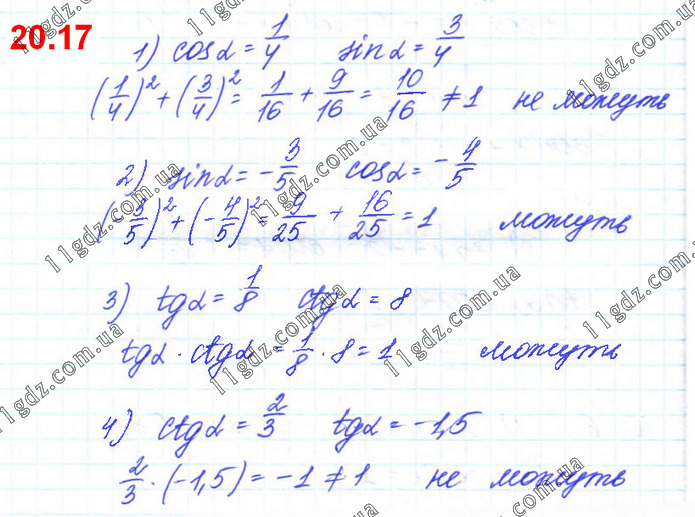 20.17
1) cosα = 1/4 sinα = 3/4
(1/4)² + (3/4)² = 1/16 + 9/16 = 10/16 ≠ 1 не можуть
2) sinα = - 3/5 cosα = - 4/5
(- 3/5)² + (- 4/5)² = 9/25 + 16/25 = 1 можуть
3) tgα = 1/8 ctgα = 8
tgα · ctgα = 1/8 · 8 = 1 можуть
4) ctgα = 2/3 tgα = -1,5
2/3 · (-1,5) = -1 ≠ 1 не можуть
11gdz.com.ua
11gdz.com.ua
11gdz.com.ua
11gdz.com.ua
11gdz.com.ua
11gdz.com.ua
11gdz.com.ua
11gdz.com.ua